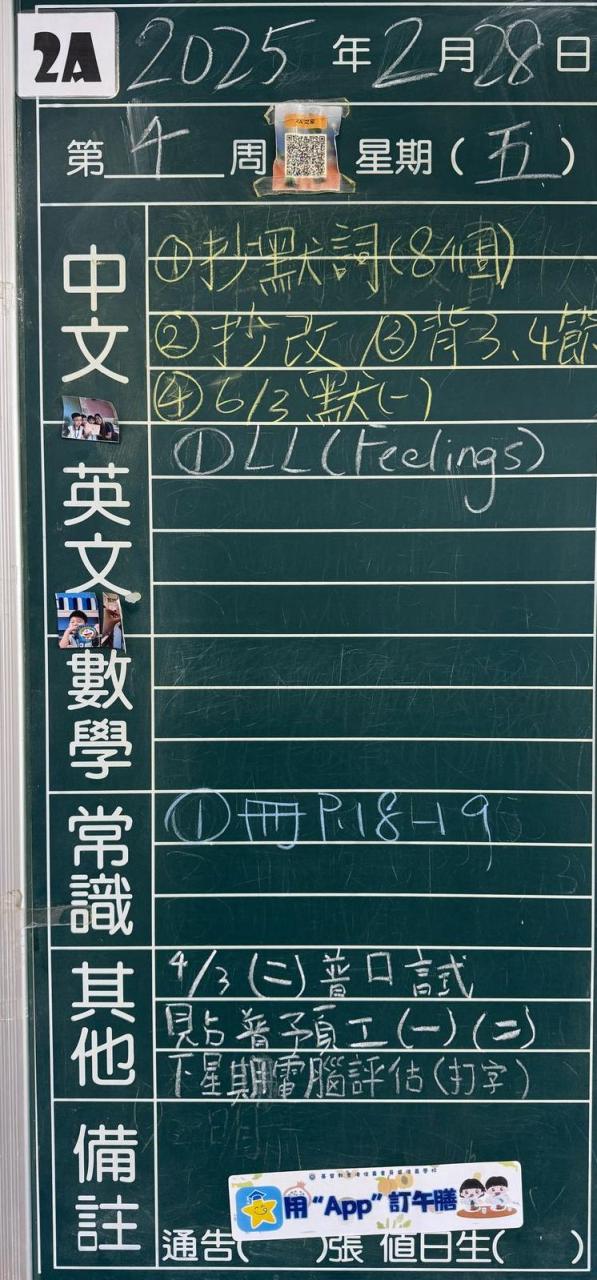 2A 2025年2月28日
第4周 星期(五)
中文
①抄默詞(8個)
②抄改/③背3、4節
④6/3默(一)
英文
①LL(Feelings)
數學
常識
①冊P.18-19
其他
4/3(二)普口試
貼普預工(一)(二)
下星期電腦評估(打字)
備註
用“App”訂午膳
通告( )張 值日生( )